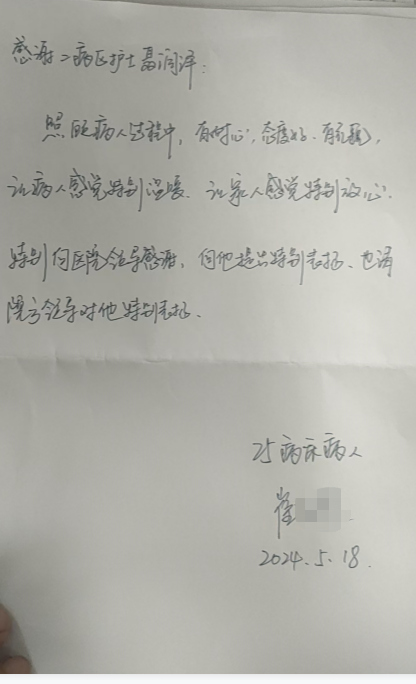 感谢二病区护士聂润泽：
照顾病人过程中，有耐心，态度好、有
让病人感觉特别温暖。让家人感觉特别放心。
特别向医院领导感谢，向他提出特别表扬。也请
院方领导对他特别表扬。
25病床病人
崔
2024.5.18.